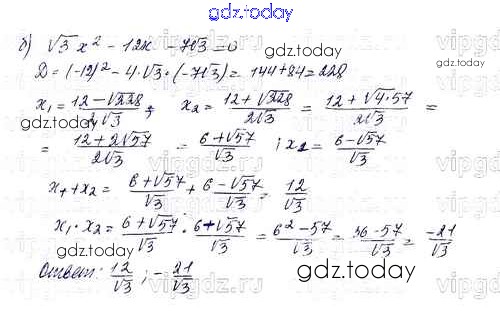 gdz.today
б) √3 x² - 12x - 7√3 = 0
gdz.today
D = (-12)² - 4·√3·(-7√3) = 144+84=228
x₁ = (12-√228)/(2√3) ; x₂ = (12+√228)/(2√3) = (12+√4·57)/(2√3) =
gdz.today
= (12+2√57)/(2√3) = (6+√57)/√3 ; x₂ = (6-√57)/√3
x₁+x₂ = (6+√57)/√3 + (6-√57)/√3 = 12/√3
x₁·x₂ = (6+√57)/√3 · (6-√57)/√3 = (6²-57)/√3 = (36-57)/√3 = -21/√3
gdz.today
Ответ: 12/√3 ; -21/√3
gdz.today